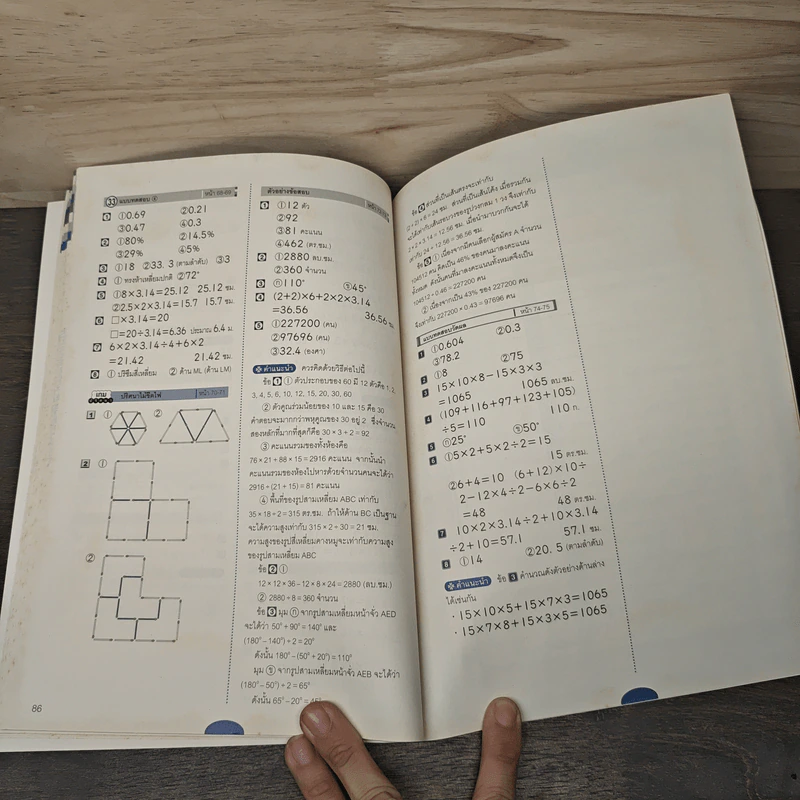 33 แบบทดสอบ ④ หน้า 68-69
1 ①0.69 ②0.21
③0.47 ④0.3
2 ①80% ②14.5%
③29% ④5%
3 ①18 ②33. 3 (ตามลำดับ) ③3
4 ① ทรงห้าเหลี่ยมปกติ ②72°
5 ①8×3.14=25.12 25.12 ซม.
②2.5×2×3.14=15.7 15.7 ซม.
6 □×3.14=20
□=20÷3.14=6.36 ประมาณ 6.4 ม.
7 6×2×3.14÷4+6×2
=21.42 21.42 ซม.
8 ① ปริซึมสี่เหลี่ยม ② ด้าน ML (ด้าน LM)
เกม ปริศนาไม้ขีดไฟ หน้า 70-71
1 ① ②
2 ①
②
86
ตัวอย่างข้อสอบ
1 ①12 ตัว
②92
③81 คะแนน
④462 (ตร.ซม.)
2 ①2880 ลบ.ซม.
②360 จำนวน
3 ก110° ข45°
4 (2+2)×6+2×2×3.14
=36.56 36.56 ซม.
5 ①227200 (คน)
②97696 (คน)
③32.4 (องศา)
คำแนะนำ ควรคิดด้วยวิธีต่อไปนี้
ข้อ 1 ① ตัวประกอบของ 60 มี 12 ตัวคือ 1, 2,
3, 4, 5, 6, 10, 12, 15, 20, 30, 60
② ตัวคูณร่วมน้อยของ 10 และ 15 คือ 30
คำตอบจะมากกว่าพหุคูณของ 30 อยู่ 2 ซึ่งจำนวน
สองหลักที่มากที่สุดก็คือ 30×3+2=92
③ คะแนนรวมของทั้งห้องคือ
76×21+88×15=2916 คะแนน จากนั้นนำ
คะแนนรวมของห้องไปหารด้วยจำนวนคนจะได้ว่า
2916÷(21+15)=81 คะแนน
④ พื้นที่ของรูปสามเหลี่ยม ABC เท่ากับ
35×18÷2=315 ตร.ซม. ถ้าให้ด้าน BC เป็นฐาน
จะได้ความสูงเท่ากับ 315×2÷30=21 ซม.
ความสูงของรูปสี่เหลี่ยมคางหมูจะเท่ากับความสูง
ของรูปสามเหลี่ยม ABC
ข้อ 2 ①
12×12×36−12×8×24=2880 (ลบ.ซม.)
② 2880÷8=360 จำนวน
ข้อ 3 มุม ก จากรูปสามเหลี่ยมหน้าจั่ว AED
จะได้ว่า 50°+90°=140° และ
(180°−140°)÷2=20°
ดังนั้น 180°−(50°+20°)=110°
มุม ข จากรูปสามเหลี่ยมหน้าจั่ว AEB จะได้ว่า
(180°−50°)÷2=65°
ดังนั้น 65°−20°=45°
ข้อ 4 ส่วนที่เป็นเส้นตรงจะเท่ากับ
(2+2)×6=24 ซม. ส่วนที่เป็นเส้นโค้ง เมื่อรวมกัน
จะได้เท่ากับเส้นรอบวงของรูปวงกลม 1 วง จึงเท่ากับ
2×2×3.14=12.56 ซม. เมื่อนำมาบวกกันจะได้
เท่ากับ 24+12.56=36.56 ซม.
ข้อ 5 ① เนื่องจากมีคนเลือกผู้สมัคร A จำนวน
104512 คน คิดเป็น 46% ของคนมาลงคะแนน
ทั้งหมด ดังนั้นคนที่มาลงคะแนนทั้งหมดจึงเป็น
104512÷0.46=227200 คน
② เนื่องจากเป็น 43% ของ 227200 คน
จึงเท่ากับ 227200×0.43=97696 คน
แบบทดสอบวัดผล หน้า 74-75
1 ①0.604 ②0.3
③78.2
2 ①8 ②75
3 15×10×8−15×3×3
=1065 1065 ลบ.ซม.
4 (109+116+97+123+105)
÷5=110 110 ก.
5 ก25° ข50°
6 ①5×2+5×2÷2=15
15 ตร.ซม.
②6+4=10 (6+12)×10÷
2−12×4÷2−6×6÷2
=48 48 ตร.ซม.
7 10×2×3.14÷2+10×3.14
÷2+10=57.1 57.1 ซม.
8 ①14 ②20. 5 (ตามลำดับ)
คำแนะนำ ข้อ 3 คำนวณดังตัวอย่างด้านล่าง
ได้เช่นกัน
· 15×10×5+15×7×3=1065
· 15×7×8+15×3×5=1065